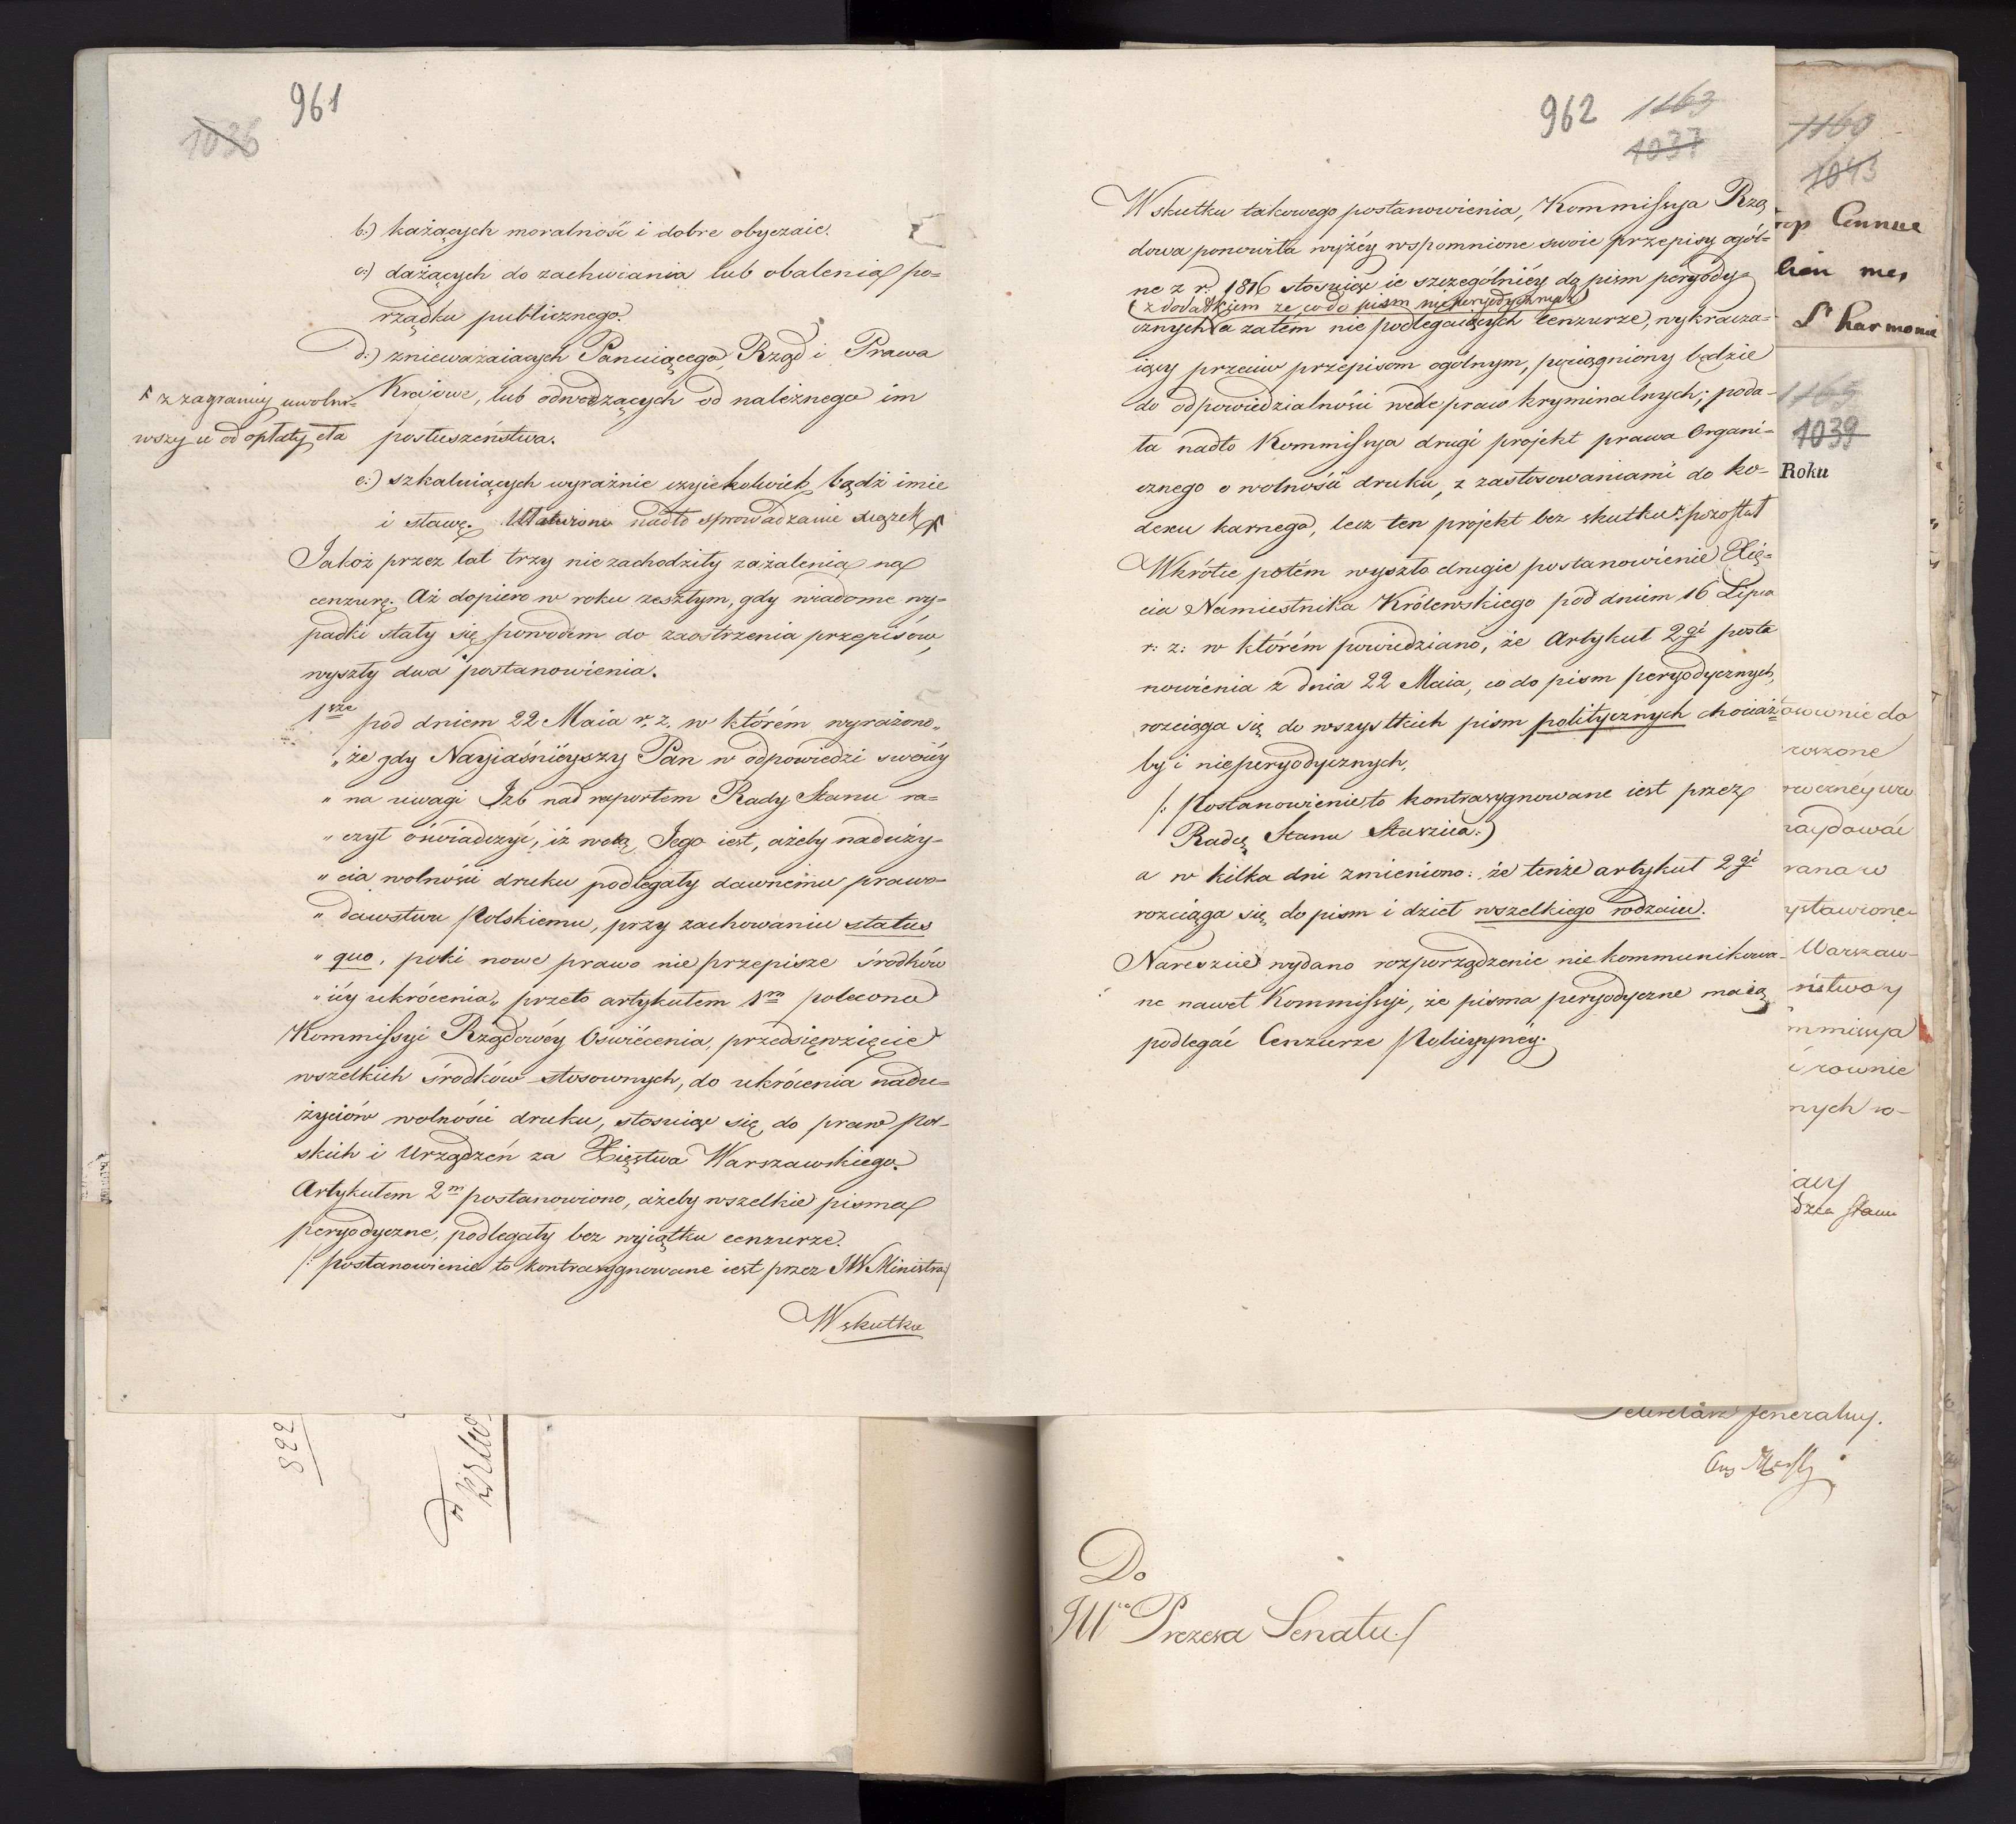 961
1036
b.) każących moralność i dobre obyczaie.
c.) dążących do zachwiania lub obalenia po=
rządku publicznego.
d.) znieważaiących Panuiącego, Rząd i Prawa
Kraiowe, lub odwodzących od należnego im
posłuszeństwa.
z zagranicy uwolni=
wszy ie od opłaty cła
e.) szkaluiących wyraźnie czyiekolwiek bądź imie
i sławę. Ułatwiono nadto sprowadzanie książek
Jakoż przez lat trzy nie zachodziły zażalenia na
cenzurę. Aż dopiero w roku zeszłym, gdy wiadome wy=
padki stały się powodem do zaostrzenia przepisów,
wyszły dwa postanowienia.
1sze pod dniem 22 Maia r. z. w którém wyrażono„
„że gdy Nayiaśnieyszy Pan w odpowiedzi swoiéy
„ na uwagi Izb nad raportem Rady Stanu ra=
„ czył oświadczyć, iż wolą Jego iest, ażeby naduży=
„ cia wolności druku podlegały dawnemu prawo=
„ dawstwu Polskiemu, przy zachowaniu status
„ quo, póki nowe prawo nie przepisze środków
„ iéy ukrócenia„ przeto artykułem 1m polecono
Kommissyi Rządowéy Oświécenia, przedsięwzięcie
wszelkich środków stosownych, do ukrócenia nadu=
życiów wolności druku, stosuiąc się do praw Pol=
skich i Urządzeń za Xięstwa Warszawskiego.
Artykułem 2m postanowiono, ażeby wszelkie pisma
peryodyczne, podlegały bez wyiątku cenzurze.
/: postanowienie to kontrasygnowane iest przez JW Ministra/
W skutku
962
1163
1037
W skutku takowego postanowienia, Kommissya Rzą
dowa ponowiła wyżéy wspomnione swoie przepisy ogól=
ne z r. 1816 stosuiąc ie szczególniéy do pism peryody=
(z dodatkiem że co do pism nieperyodycznych)
cznych a zatém nie podlegaiących Cenzurze, wykracza=
iący przeciw przepisom ogólnym, pociągniony będzie
do odpowiedzialności wedle praw kryminalnych; poda=
ła nadto Kommissya drugi projekt prawa Organi=
cznego o wolności druku, z zastosowaniami do ko=
dexu karnego, lecz ten projekt bez skutku pozostał
Wkrótce potém wyszło drugie postanowienie Xię=
cia Namiestnika Królewskiego pod dniem 16 Lipca
r: z: w którém powiedziano, że Artykuł 2gi posta
nowienia z dnia 22 Maia, co do pism peryodycznych,
rozciąga się do wszystkich pism politycznych chociaż=
by i nieperyodycznych.
/: Postanowienie to kontrasygnowane iest przez
Radcę Stanu Staszica:)
a w kilka dni zmieniono: że tenże artykuł 2gi
rozciąga się do pism i dzieł wszelkiego rodzaiu.
Nareszcie wydano rozporządzenie niekommunikowa=
ne nawet Kommissyi, że pisma peryodyczne maią
podlegać Cenzurze Policyynéy.
1160
1043
Cennue
lien mes
Sr harmonie
1165
1039
Roku
owownie do
raydować
rana w
ystawione
Warszaw=
ństwa y
mmissya
i rownie
nych w=
dzca Stanu
822
Sekretarz Jeneralny.
Do
JWo Prezesa Senatu